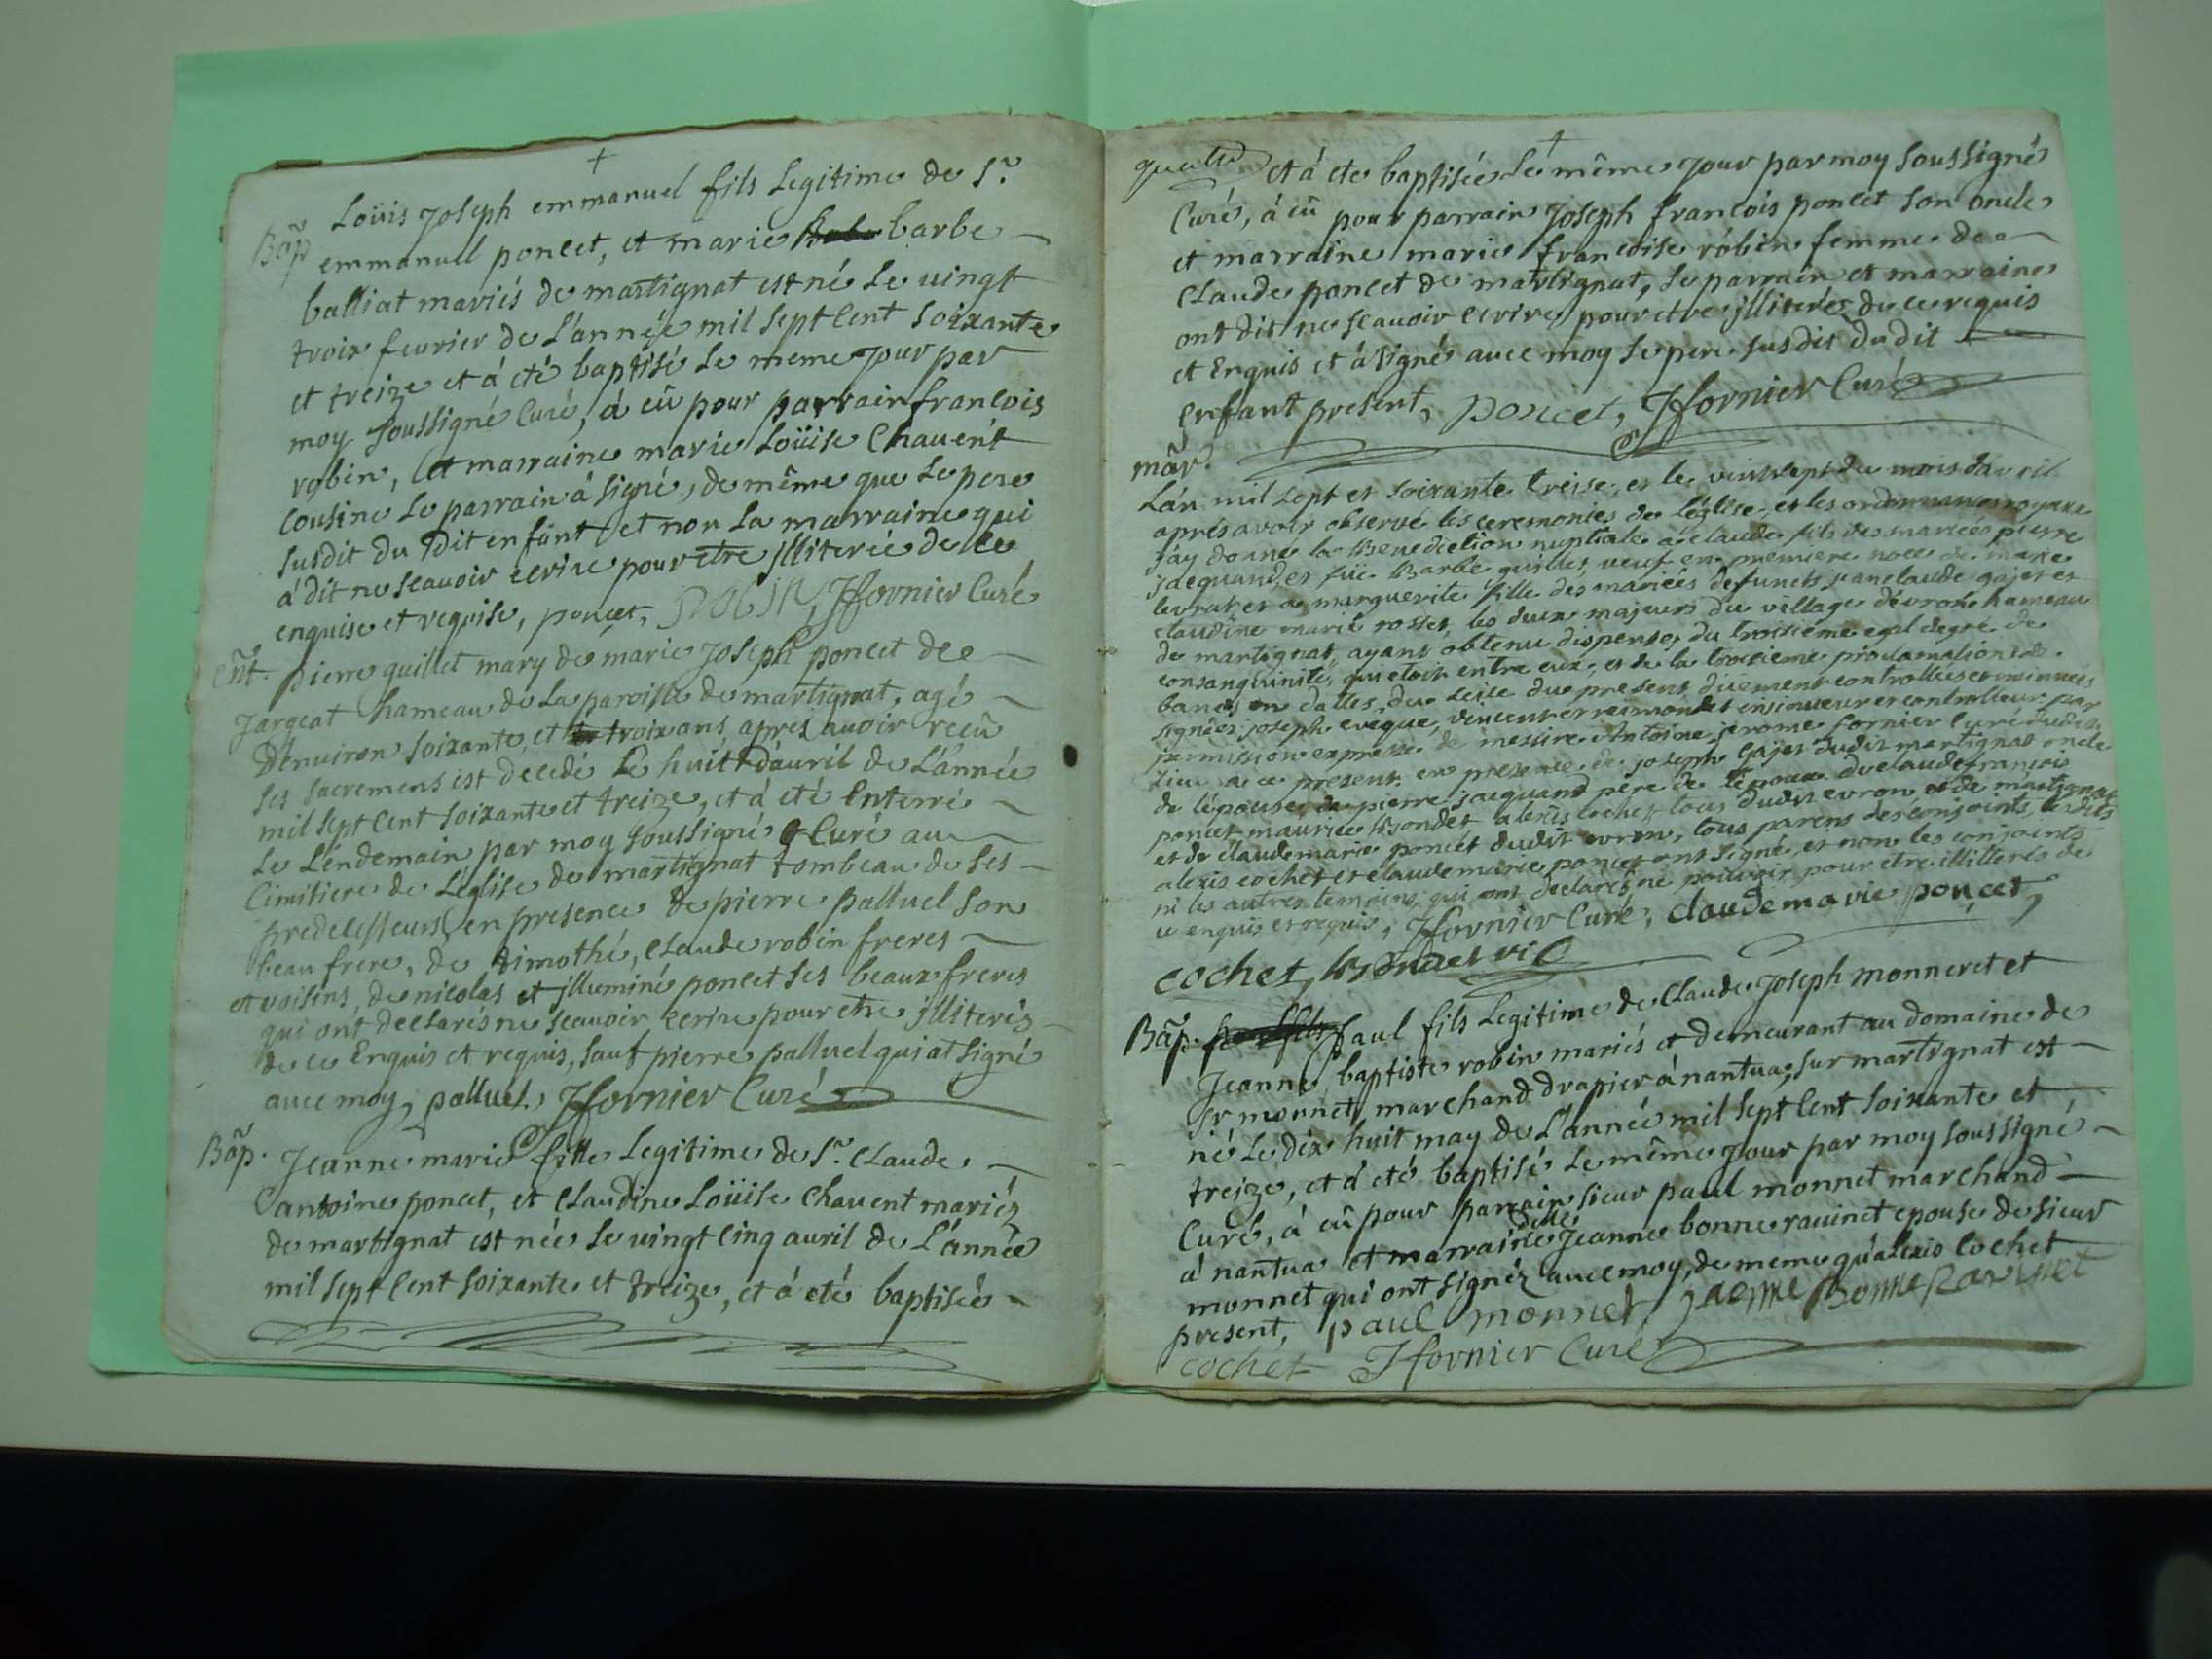 +
Bap̃
Loüis Joseph emmanuel fils Legitime de S.r
emmanuel poncet, et marie barbe
balliat mariés de martignat est né Le vingt
troix feurier de L'année mil sept Cent soixante
et treize et à été baptisé Le meme Jour par
moy soussigné Curé, à eû pour parrain francois
robin, et marraine marie Loüise Chauent
cousine Le parrain à signé, de même que Le pere
susdit du dit enfant et non La marraine qui
à dit ne scauoir ecrire pour etre jlliterée de ce
enquise et requise, poncet, ROBIN, Jfornier Curé
eñt. pierre guillet mary de marie Joseph poncet de
Jargeat hameau de La paroisse de martignat, agé
D'enuiron soixante, et troix ans, apres auoir recû
ses sacremens est decedé Le huit d'auril de L'année
mil sept Cent soixante et treize, et à été Enterré
Le Lendemain par moy soussigné Curé au
Cimitiere de L'église de martignat tombeau de ses
predecesseurs, en presence de pierre palluel son
beau frere, de timothé, Claude robin freres
et voisins, de nicolas et jlluminé poncet ses beaux freres
qui ont declarés ne scauoir ecrire pour etre jlliterés
de ce Enquis et requis, sauf pierre palluel qui at signé
auec moy, palluel, Jfornier Curé
Bap̃. Jeanne marie fille Legitime de S.r Claude
antoine poncet, et Claudine Loüise Chauent mariés
de martignat est née Le vingt cinq auril de L'année
mil sept Cent soixante et treize, et à eté baptisée
+
quatre
et à ete baptisée Le même Jour par moy soussigné
Curé, à eû pour parrain Joseph francois poncet son oncle
et marraine marie francoise robin femme de
Claude poncet de martignat, Le parrain et marraine
ont dit ne scauoir ecrire pour etre jlliterés de ce requis
et Enquis et à signé auec moy Le pere susdit du dit
enfant present, poncet, Jfornier Curé
mãr.
L'an mil sept et soixante treise, et le vint sept du mois d'avril
aprés avoir observé les ceremonies de l'église, et les ordonnances royaux
j'ay donné la Benediction nuptiale à claude fils des mariées pierre
jacquand, et füe Barbe guillet, veuf en premiere noce de marie
levrat, et a marguerite fille des mariees defuncts jean claude gajet et
claudine marie rosset, les deux majeurs du village d'évron hameau
de martignat, ayant obtenu dispense, du troisiéme egal degré de
consanguinité, qui etoit entre eux, et de la troisieme proclamation de
bancs en dattes, du seise du present, duement controllées et insinuées
signées joseph eveque, vincent et insinueur et controlleur par
permission expresse de messire Antoine jerome fornier curé dudit
lieu a ce present. en presence de joseph gajet dudit martignat oncle
de l'épouse, de pierre jacquand pére de l'époux de claude francois
poncet, maurice Bondet, alexis cochet, tous dudit evron et de martignat
et de claude marie poncét dudit evron, tous parens des conjoints, lesdits
alexis cochet et claude marie poncet ont signé, et non les conjoints
ni les autres temoins qui ont declarés ne pouvoir pour étre illitterés de
ce enquis et requis, Jfornier Curé, claude marie poncet,
cochet, Bondet vic
Bap̃. paul fils Legitime de Claude Joseph monneret et
Jeanne baptiste robin mariés et demeurant au domaine de
Sr monnet, marchand drapier à nantua, sur martignat est
né Le dix huit may de L'année mil sept Cent soixante et
treize, et à eté baptisé Le même Jour par moy soussigné
Curé, à eû pour parrain sieur paul monnet marchand
à nantua et marraine delle Jeanne bonne rauinet epouse de sieur
monnet qui ont signéz auec moy, de meme qu'alexis Cochet
present, paul monnet, jaenne Bonne Ravinet
cochet Jfornier Curé